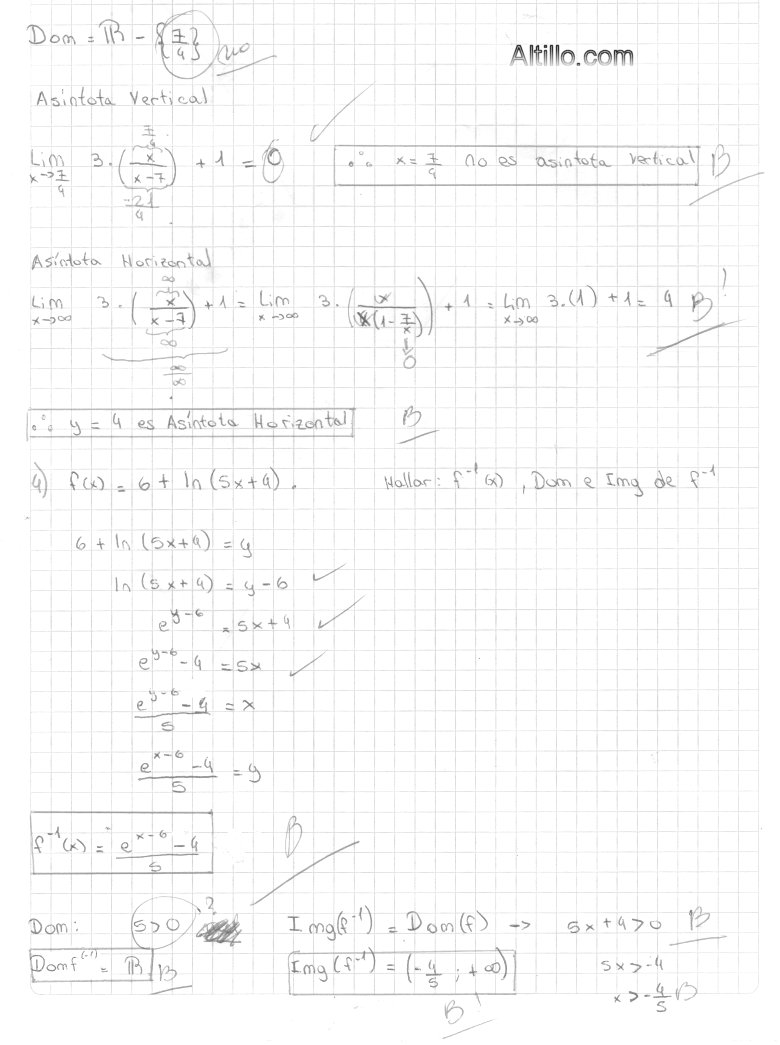 Dom = ℝ - {7/4} no
Altillo.com
Asintota Vertical
7/4
Lim x→7/4 3·(x/(x-7)) + 1 = 0 ∴ x = 7/4 no es asintota vertical B
-21/4
Asíntota Horizontal
∞
Lim x→∞ 3·(x/(x-7)) + 1 = Lim x→∞ 3·(x/(x(1-7/x))) + 1 = Lim x→∞ 3.(1) + 1 = 4 B!
∞ ↓
∞/∞ 0
∴ y = 4 es Asíntota Horizontal B
4) f(x) = 6 + ln (5x+4). Hallar: f⁻¹(x), Dom e Img de f⁻¹
6 + ln (5x+4) = y
ln (5x+4) = y-6 ✓
e^(y-6) = 5x+4 ✓
e^(y-6) - 4 = 5x ✓
(e^(y-6) - 4)/5 = x
(e^(x-6) - 4)/5 = y
f⁻¹(x) = (e^(x-6) - 4)/5 B
Dom: 5>0 ? Img(f⁻¹) = Dom(f) → 5x+4>0 B
Domf⁽⁻¹⁾ = ℝ B Img(f⁻¹) = (-4/5 ; +∞) 5x>-4
B! x>-4/5 B